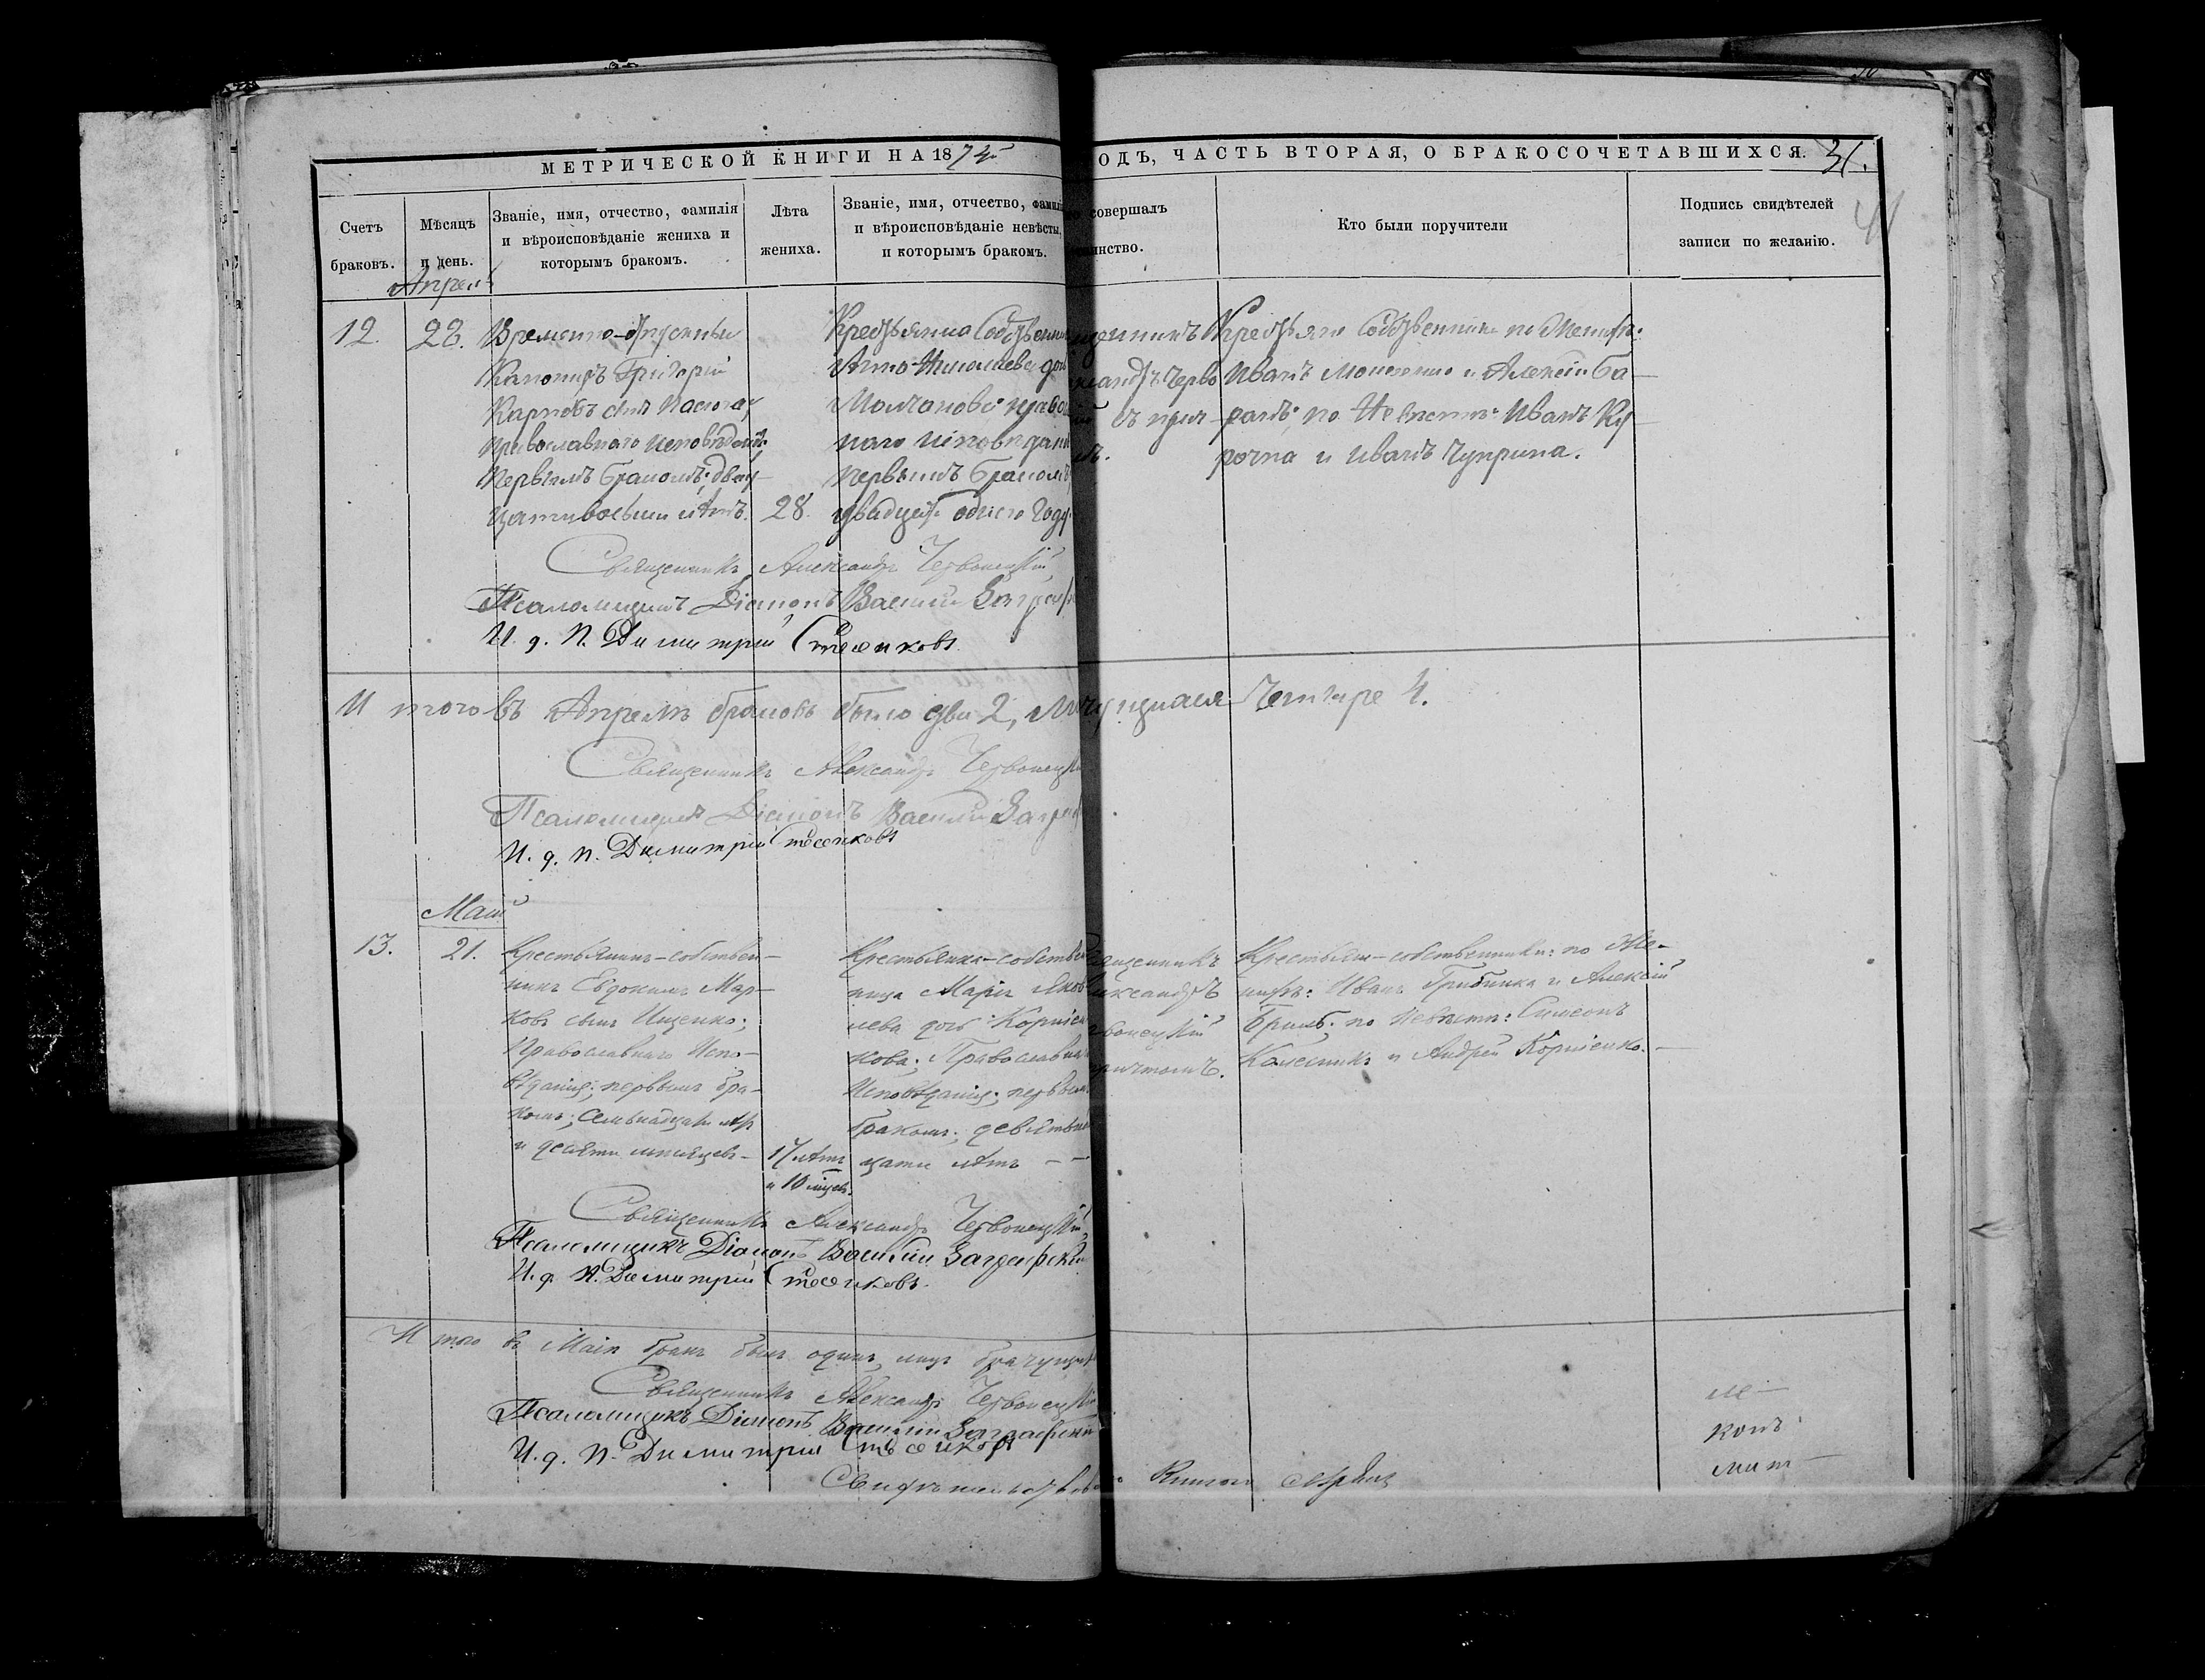 МЕТРИЧЕСКОЙ КНИГИ НА 187
ОДЪ, ЧАСТЬ ВТОРАЯ, О БРАКОСОЧЕТАВШИХСЯ. 31.
Счетъ
браковъ.
Мѣсяцъ
и день.
Званіе, имя, отчество, фамилія
и вѣроисповѣданіе жениха и
которымъ бракомъ.
Лѣта
жениха.
Званіе, имя, отчество, фамилі
и вѣроисповѣданіе невѣсты,
и которымъ бракомъ.
совершалъ
инство.
Кто были поручители
Подпись свидѣтелей
записи по желанію.
41
Апрель
12.
28.
Временно-отпускный
Канониръ Григорій
Карповъ сынъ
православнаго исповѣданія
первымъ бракомъ; двад-
цати восьми лѣтъ.
28.
Крестьянка Собственни
Анна Николаева дочь
Молчанова правосл
наго исповѣдані
первымъ бракомъ
двадцати одного года
щенникъ
ксандръ Черво
съ прич-
Крестьяне Собственники по Женихѣ:
Иванъ и Алексѣй Ба-
ранъ; по Невѣстѣ: Иванъ Ку-
рочка и Иванъ Чуприна.
Священникъ Александръ Червонецкій
Псаломщикъ Діаконъ Василій Заграфс
И. д. п. Димитрій Стесенковъ
И того въ Апрелѣ браковъ было два 2, четыре 4.
Священникъ Александръ Червонецкі
Псаломщикъ Діаконъ Василій Загра
И. д. п. Димитрій Стесенковъ
Май
13.
21.
Крестьянинъ-собствен-
никъ Евдокимъ Мар-
ковъ сынъ Ищенко;
Православнаго Испо-
вѣданія; первымъ бра-
комъ; семнадцати лѣтъ
и десяти мѣсяцевъ-
17 лѣтъ
и 10 мѣсяц.
Крестьянка-собствен
ница Марія Яков
лева дочь Корніен
кова; Православна
Исповѣданія; первым
бракомъ; девятьна
цати лѣтъ - -
вященникъ
лександръ
рвонецкій
ричтомъ.
Крестьяне-собственники: по Же-
нихѣ: Иванъ Грибинка и Алексій
по Невѣстѣ: Симеонъ
Колесникъ и Андрей Корніенко.-
Священникъ Александръ Червонецкій
Псаломщикъ Діаконъ Василій Заграфскі
И. д. п. Димитрій Стесенковъ.
И того въ Маіѣ бракъ былъ одинъ лицъ брачущихся
Священникъ Александръ Червонецкій
Псаломщикъ Діаконъ Василій Заграфскій
И. д. п. Димитрій Стесенковъ